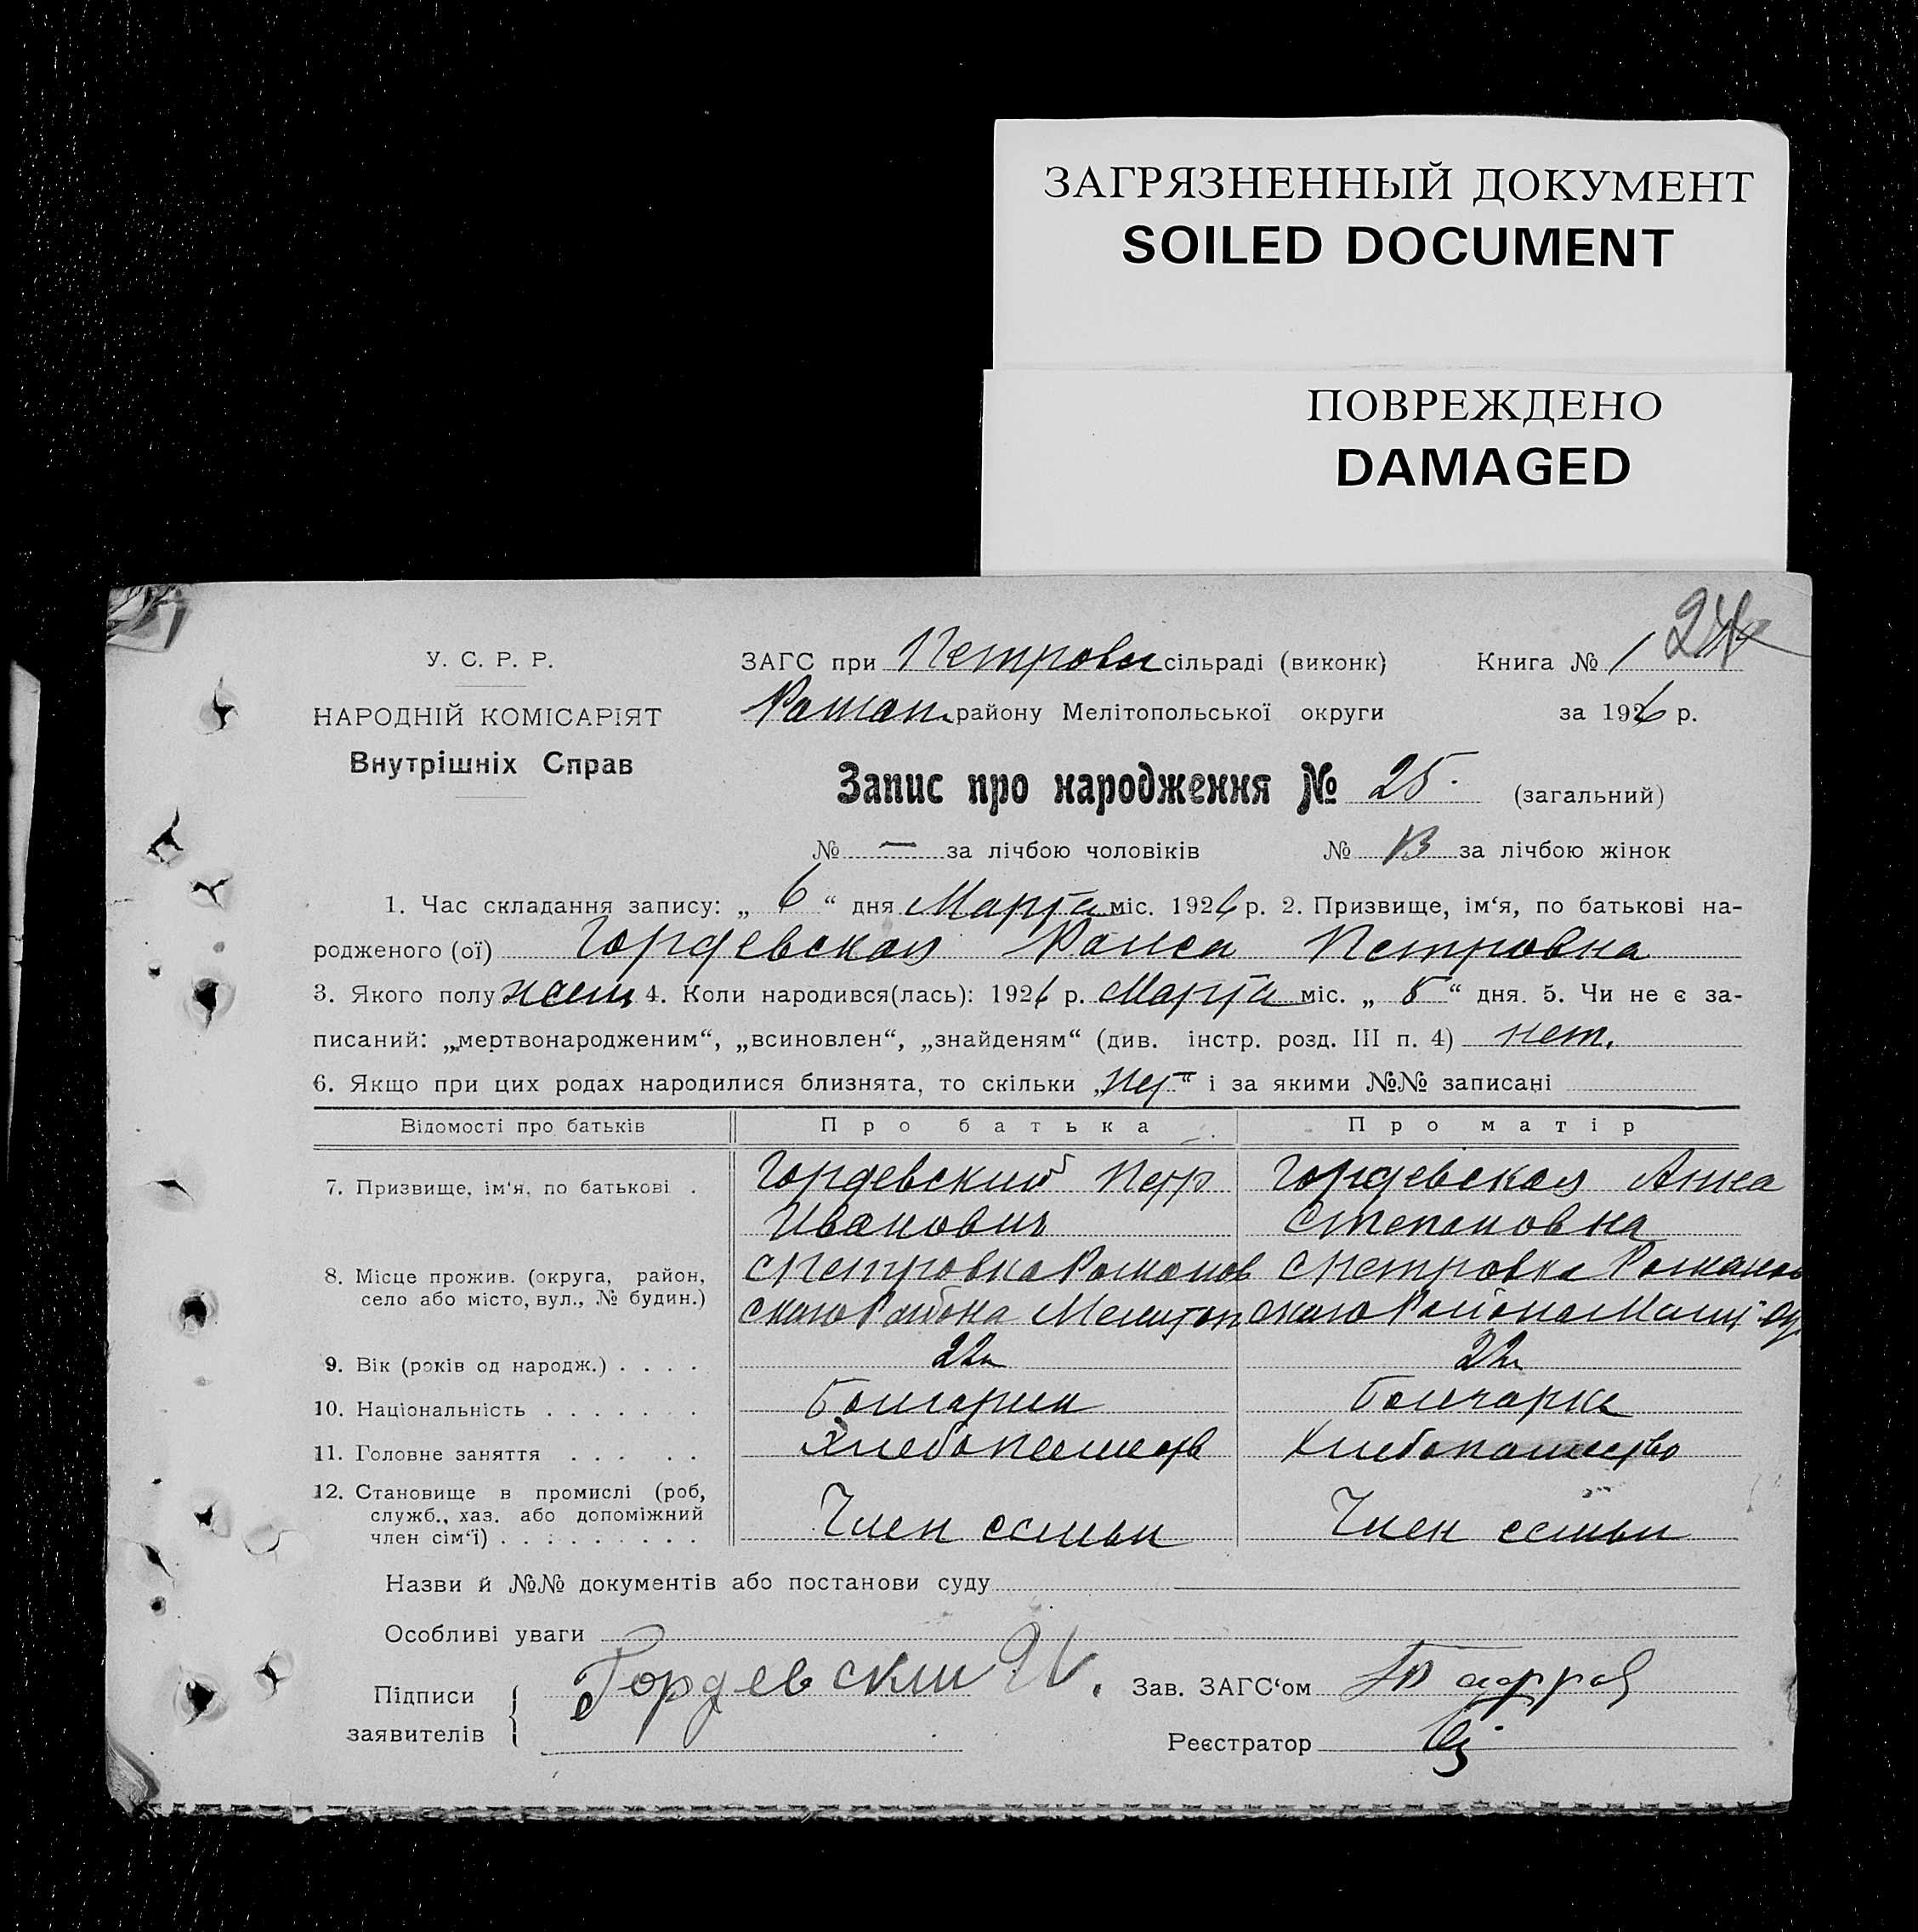 ЗАГРЯЗНЕННЫЙ ДОКУМЕНТ
SOILED DOCUMENT
ПОВРЕЖДЕНО
DAMAGED
24
У. С. Р. Р.
НАРОДНІЙ КОМІСАРІЯТ
Внутрішніх Справ
ЗАГС при Петровск сільраді (виконк) Книга № 1
Роман. району Мелітопольської округи за 1926 р.
Запис про народження № 25. (загальний)
№ — за лічбою чоловіків № 13 за лічбою жінок
1. Час складання запису: „ 6 “ дня Марта міс. 1926 р. 2. Призвище, ім‘я, по батькові на-
родженого (ої) Гордевская Раиса Петровна
3. Якого полу жен 4. Коли народився(лась): 1926 р. Марта міс. „ 5 “ дня. 5. Чи не є за-
писаний: „мертвонародженим“, „всиновлен“, „знайденям“ (див. інстр. розд. III п. 4) нет.
6. Якщо при цих родах народилися близнята, то скільки „ “ і за якими №№ записані
Відомості про батьків Про батька Про матір
7. Призвище, ім‘я, по батькові . Гордевский Петр Гордевская Анна
Иванович Степановна
8. Місце прожив. (округа, район, с Петровка Романов с Петровка Романов
село або місто, вул., № будин.) ского Района Мелитоп ского Района
9. Вік (років од народж.) . . . . 22 22
10. Національність . . . . . . . Болгарин Болгарка
11. Головне заняття . . . . . Хлебопашеств Хлебопашество
12. Становище в промислі (роб,
служб., хаз. або допоміжний
член сім‘ї) . . . . . . . . . Член семьи Член семьи
Назви й №№ документів або постанови суду
Особливі уваги
Підписи
заявителів
Гордевски И.
Зав. ЗАГС‘ом
Реєстратор